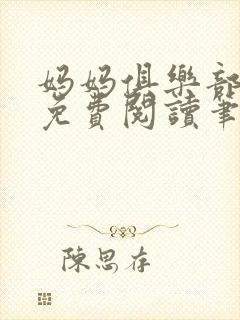 媽媽俱樂部
免費閱讀筆
陳思存